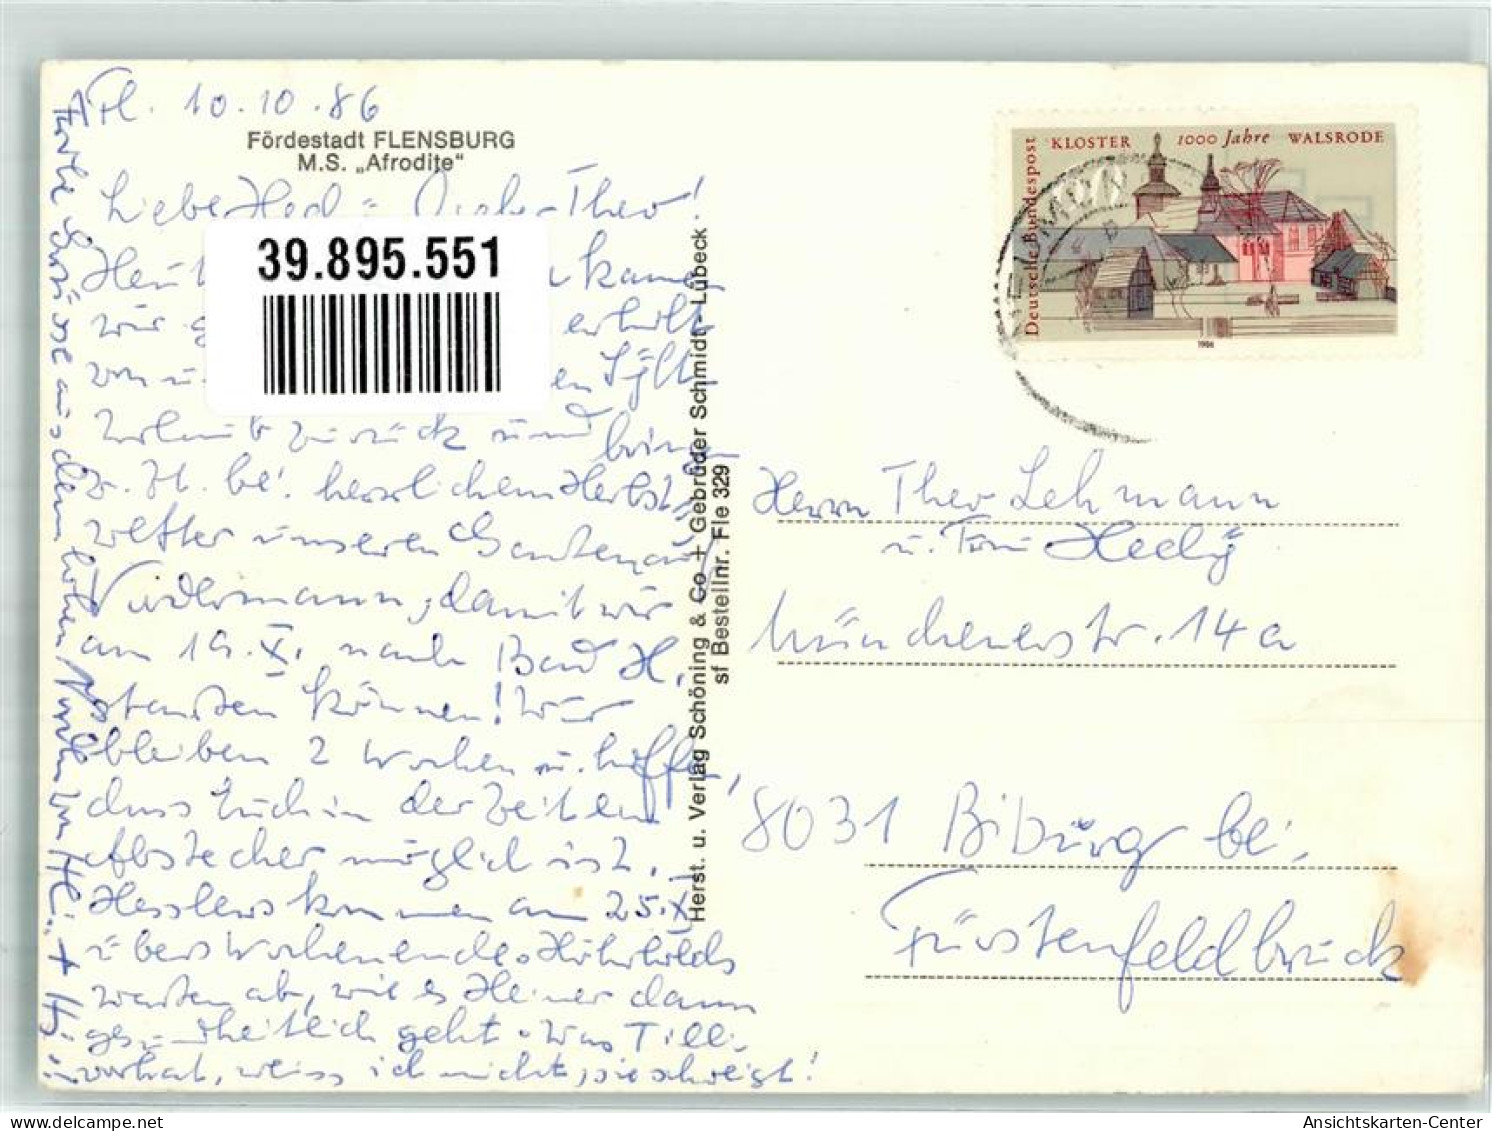 Fl. 10.10.86
Fördestadt FLENSBURG
M.S. „Afrodite“
Liebe Hed - Lieber Theo!
39.895.551
kamen
wir erholt
von Sylt
Urlaub zurück und bringen
z. Zt. bei herrlichem Herbst
wetter unseren Garten auf
Vordermann, damit wir
am 19.X. nach Bad H.
starten können! Wir
bleiben 2 Wochen u. hoffen,
dass Euch in der Zeit ein
Abstecher möglich ist.
Hesslers kommen am 25.X.
übers Wochenende.
warten ab, wie es Heiner dann
gesundheitlich geht. Was Tilli
vorhat, weiss ich nicht, sie schweigt!
Herzliche Grüsse aus dem hohen Norden von
Herst. u. Verlag Schöning & Co + Gebrüder Schmidt - Lübeck
sf Bestellnr. Fle 329
Deutsche Bundespost
KLOSTER 1000 Jahre WALSRODE
1986
Herrn Theo Lehmann
u. Frau Hedy
Münchenerstr. 14a
8031 Biburg bei
Fürstenfeldbruck
Ansichtskarten-Center